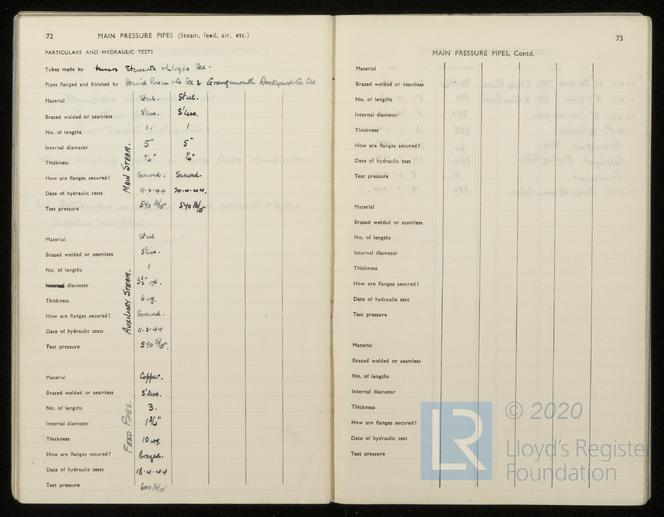 72 MAIN PRESSURE PIPES (Steam, feed, air, etc.)
PARTICULARS AND HYDRAULIC TESTS
Tubes made by Stewarts & Lloyds Ltd.
Pipes flanged and finished by David Rowan & Co Ltd & Grangemouth Dockyard Co Ltd
MAIN STEAM.
Material Steel. Steel.
Brazed welded or seamless S'less. S'less.
No. of lengths 1. 1
Internal diameter 5" 5"
Thickness 1/4" 1/4"
How are flanges secured? Screwed. Screwed.
Date of hydraulic tests 11-2-44 20-4-44.
Test pressure 540 lb/□" 540 lb/□"
AUXILIARY STEAM.
Material Steel
Brazed welded or seamless S'less.
No. of lengths 1
diameter
Thickness 6 wg.
How are flanges secured? Screwed.
Date of hydraulic tests 11-2-44
Test pressure 540 lb/□".
FEED PIPES.
Material Copper.
Brazed welded or seamless S'less.
No. of lengths 3.
Internal diameter 1 3/4"
Thickness 10 wg.
How are flanges secured? Brazed.
Date of hydraulic tests 18-4-44
Test pressure 600 lb/□"
73
MAIN PRESSURE PIPES, Contd.
Material
Brazed welded or seamless
No. of lengths
Internal diameter
Thickness
How are flanges secured?
Date of hydraulic tests
Test pressure
Material
Brazed welded or seamless
No. of lengths
Internal diameter
Thickness
How are flanges secured?
Date of hydraulic tests
Test pressure
Material
Brazed welded or seamless
No. of lengths
Internal diameter
Thickness
How are flanges secured?
Date of hydraulic tests
Test pressure
LR © 2020
Lloyd's Register
Foundation